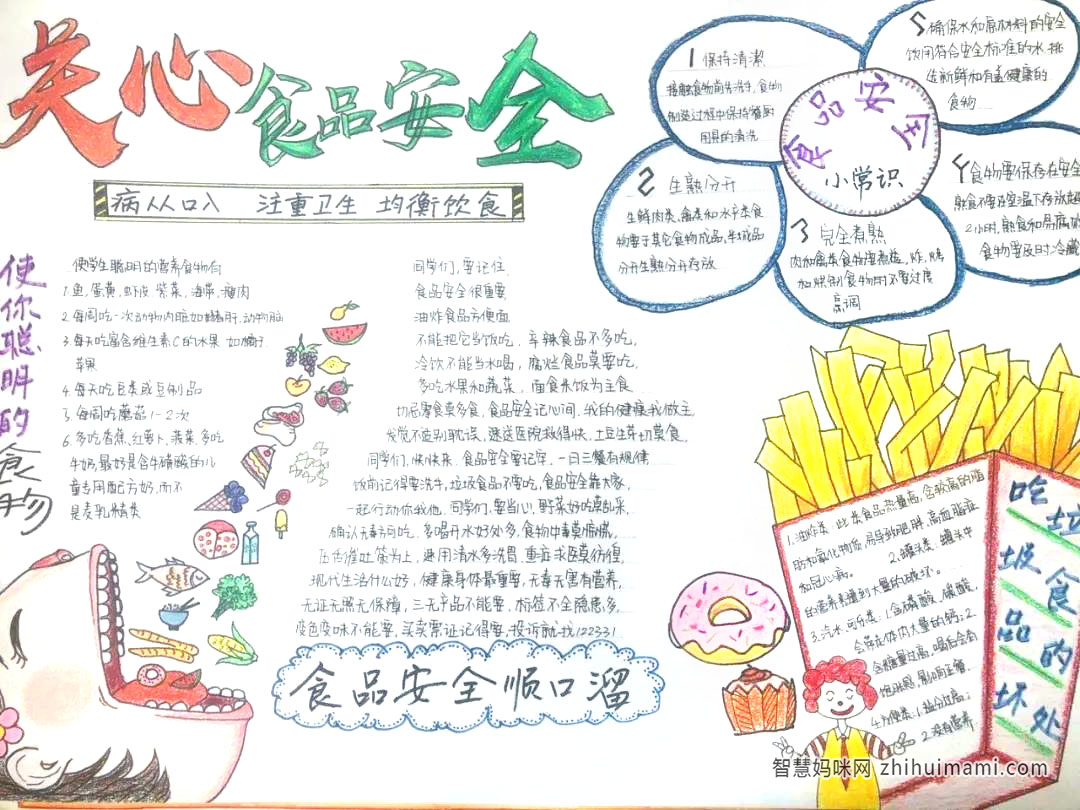 关心食品安全
病从口入 注重卫生 均衡饮食
使你聪明的食物
使学生聪明的营养食物有
1.鱼,蛋黄,虾皮 紫菜,海带,瘦肉
2.每周吃一次动物内脏如猪肝,动物脑
3.每天吃富含维生素C的水果 如橘子
苹果
4.每天吃豆类或豆制品
5.每周吃蘑菇1-2次
6.多吃香蕉,红萝卜,菠菜,多吃
牛奶,最好是含牛磺酸的儿
童专用配方奶,而不
是麦乳精类
同学们,要记住,
食品安全很重要,
油炸食品方便面
不能把它当饭吃,辛辣食品不多吃,
冷饮不能当水喝,腐烂食品莫要吃,
多吃水果和蔬菜,面食米饭为主食
切忌零食莫多食,食品安全记心间,我的健康我做主,
发觉不适别耽误,速送医院救得快,土豆生芽切莫食,
同学们,快快来,食品安全要记牢,一日三餐有规律
饭前记得要洗手,垃圾食品不要吃,食品安全靠大家,
一起行动你我他,同学们,要当心,野菜好吃莫乱采,
确认无毒方可吃,多喝开水好处多,食物中毒莫慌慌,
压舌催吐第为上,速用清水多洗胃,重症求医莫彷徨,
现代生活什么好,健康身体最重要,无毒无害有营养,
无证无照无保障,三无产品不能要,标签不全隐患多,
变色变味不能要,买卖票证记得要,投诉就找122331
食品安全顺口溜
食品安全
小常识
1 保持清潔
接触食物前先洗手,食物
制造过程中保持餐厨
用具的清洗
2 生熟分开
生鲜肉类,禽类和水产类食
物要于其它食物成品,半成品
分开生熟分开存放
3 完全煮熟
肉和禽类食物湩煮蒸,炸,烤
和烘制食物时不要过度
烹调
4 食物要保存在安全
熟食不要在室温下存放超
2小时,熟食和易腐败
食物要及时冷藏
5 确保水和原材料的安全
饮用符合安全标准的水,挑
选新鲜和有益健康的
食物
吃垃圾食品的坏处
1.油炸类:此类食品热量高,含较高的脂
肪和氧化物质,易导致肥胖,高血脂症
和冠心病。 2.罐头类:罐头中
的营养素遭到大量的破坏。
3.汽水,可乐类:1.含磷酸,碳酸,
会带走体内大量的钙;2.
含糖量过高,喝后会有
饱胀感,影响正餐
4.方便类:1.盐分过高;
2.没有营养
智慧妈咪网 zhihuimami.com